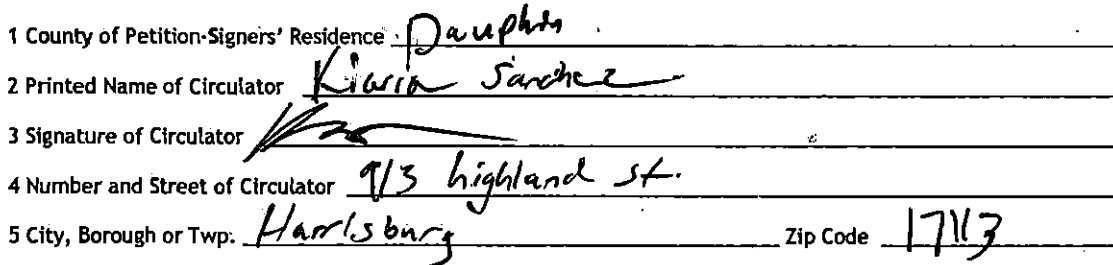 1 County of Petition-Signers' Residence Dauphin
2 Printed Name of Circulator Kiaria Sanchez
3 Signature of Circulator
4 Number and Street of Circulator 913 highland st.
5 City, Borough or Twp. Harrisburg Zip Code 17113